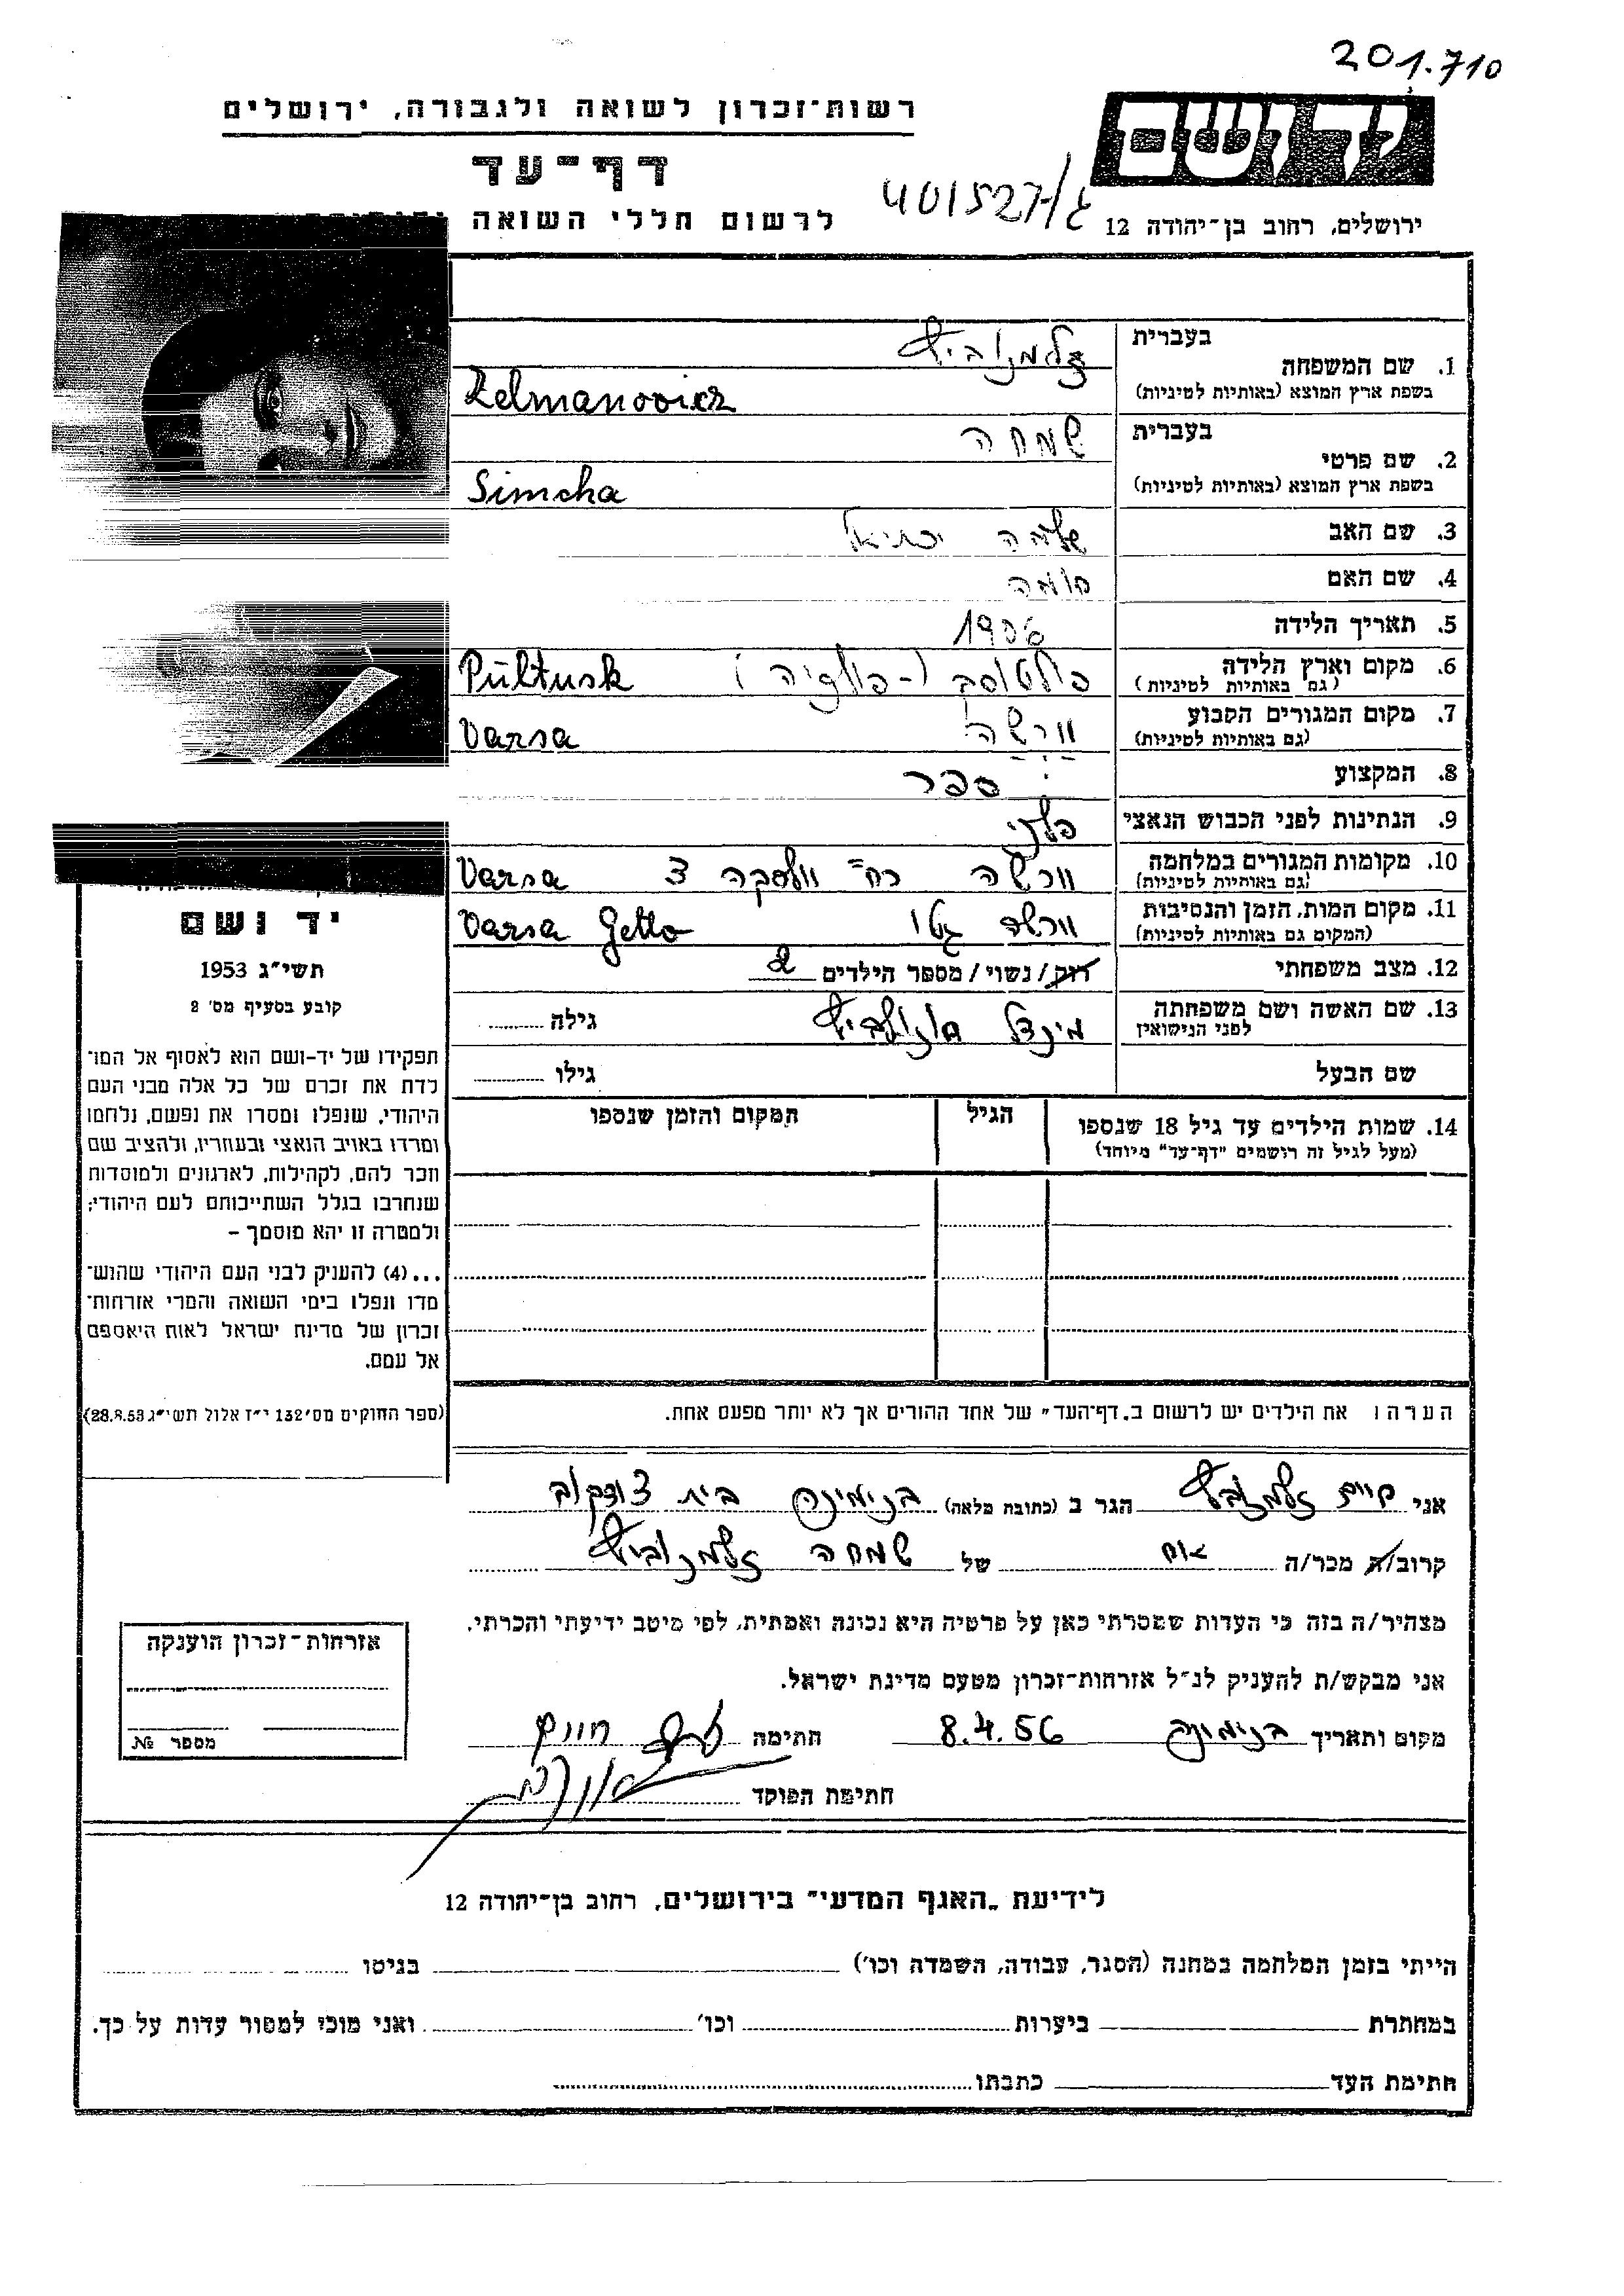 201.710
רשות־זכרון לשואה ולגבורה, ירושלים
יד ושם
דף־עד
401527/ג
לרשום חללי השואה
ירושלים, רחוב בן־יהודה 12
בעברית
זלמנוביץ
1. שם המשפחה
בשפת ארץ המוצא (באותיות לטיניות)
Zelmanovicz
בעברית
שמחה
2. שם פרטי
בשפת ארץ המוצא (באותיות לטיניות)
Simcha
3. שם האב
שלמה יכתיאל
4. שם האם
5. תאריך הלידה
1906
6. מקום וארץ הלידה
(גם באותיות לטיניות)
פולטוסק (פולניה) Pültusk
7. מקום המגורים הקבוע
(גם באותיות לטיניות)
וורשה Varsa
8. המקצוע
ספר
9. הנתינות לפני הכבוש הנאצי
פולני
10. מקומות המגורים במלחמה
(גם באותיות לטיניות)
וורשה רח' וולסקה 3 Varsa
11. מקום המות, הזמן והנסיבות
(המקום גם באותיות לטיניות)
וורשה גטו Varsa Getto
12. מצב משפחתי
רוק/נשוי/מספר הילדים 2
13. שם האשה ושם משפחתה
לפני הנישואין
מינדל
גילה
שם הבעל
גילו
14. שמות הילדים עד גיל 18 שנספו
(מעל לגיל זה רושמים "דף־עד" מיוחד)
הגיל
המקום והזמן שנספו
יד ושם
תשי"ג 1953
קובע בסעיף מס' 2
תפקידו של יד-ושם הוא לאסוף אל המו־
לדת את זכרם של כל אלה מבני העם
היהודי, שנפלו ומסרו את נפשם, נלחמו
ומרדו באויב הנאצי ובעוזריו, ולהציב שם
וזכר להם, לקהילות, לארגונים ולמוסדות
שנחרבו בגלל השתייכותם לעם היהודי;
ולמטרה זו יהא מוסמך –
...(4) להעניק לבני העם היהודי שהוש־
מדו ונפלו בימי השואה והמרי אזרחות־
זכרון של מדינת ישראל לאות היאספם
אל עמם.
(ספר החוקים מס' 132 י"ז אלול תשי"ג 28.8.53)
הערה: את הילדים יש לרשום ב„דף־העד" של אחד ההורים אך לא יותר מפעם אחת.
אני חיים זלמנוביץ הגר ב (כתובת מלאה) בנימינה בית
קרוב/ה מכר/ה אח של שמחה זלמנוביץ
מצהיר/ה בזה כי העדות שמסרתי כאן על פרטיה היא נכונה ואמתית, לפי מיטב ידיעתי והכרתי.
אני מבקש/ת להעניק לנ"ל אזרחות־זכרון מטעם מדינת ישראל.
מקום ותאריך בנימינה 8.4.56 חתימה
חתימת הפוקד
אזרחות־זכרון הוענקה
מספר №
לידיעת „האגף המדעי" בירושלים, רחוב בן־יהודה 12
הייתי בזמן המלחמה במחנה (הסגר, עבודה, השמדה וכו') בגיטו
במחתרת ביערות וכו' ואני מוכן למסור עדות על כך.
חתימת העד כתבתו